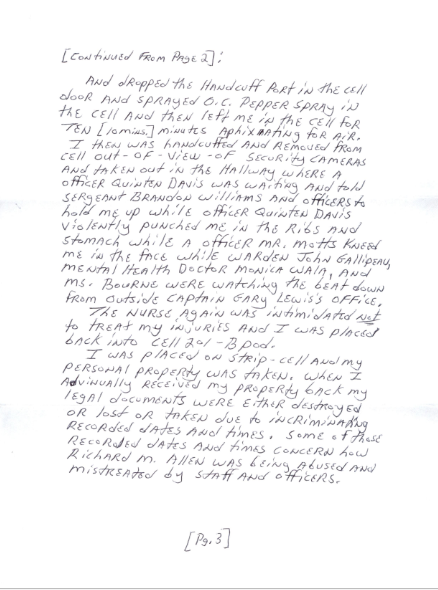 [Continued From Page 2]:
And dropped the Handcuff Port in the cell
door And sprayed O.C. Pepper spray in
the cell And then left me in the cell for
TEN [10mins.] minutes Aphixinating for Air.
I then was handcuffed And Removed From
cell out-of-view-of security cameras
And taken out in the Hallway where A
officer Quinten Davis was waiting and told
Sergeant Brandon Williams and officers to
hold me up while officer Quinten Davis
violently punched me in the Ribs and
stomach while a officer Mr. Motts kneed
me in the face while Warden John Gallipeau,
Mental Health Doctor Monica Wala, and
Ms. Bourne were watching the beat down
from outside Captain Gary Lewis's office.
The Nurse Again was intimidated not
to treat my injuries and I was placed
back into cell 201-B pod.
I was placed on strip-cell and my
personal property was taken. When I
Advinually received my property back my
legal documents were either destroyed
or lost or taken due to incriminating
recorded dates and times. Some of those
recorded dates and times concern how
Richard M. Allen was being abused and
mistreated by staff and officers.
[Pg.3]